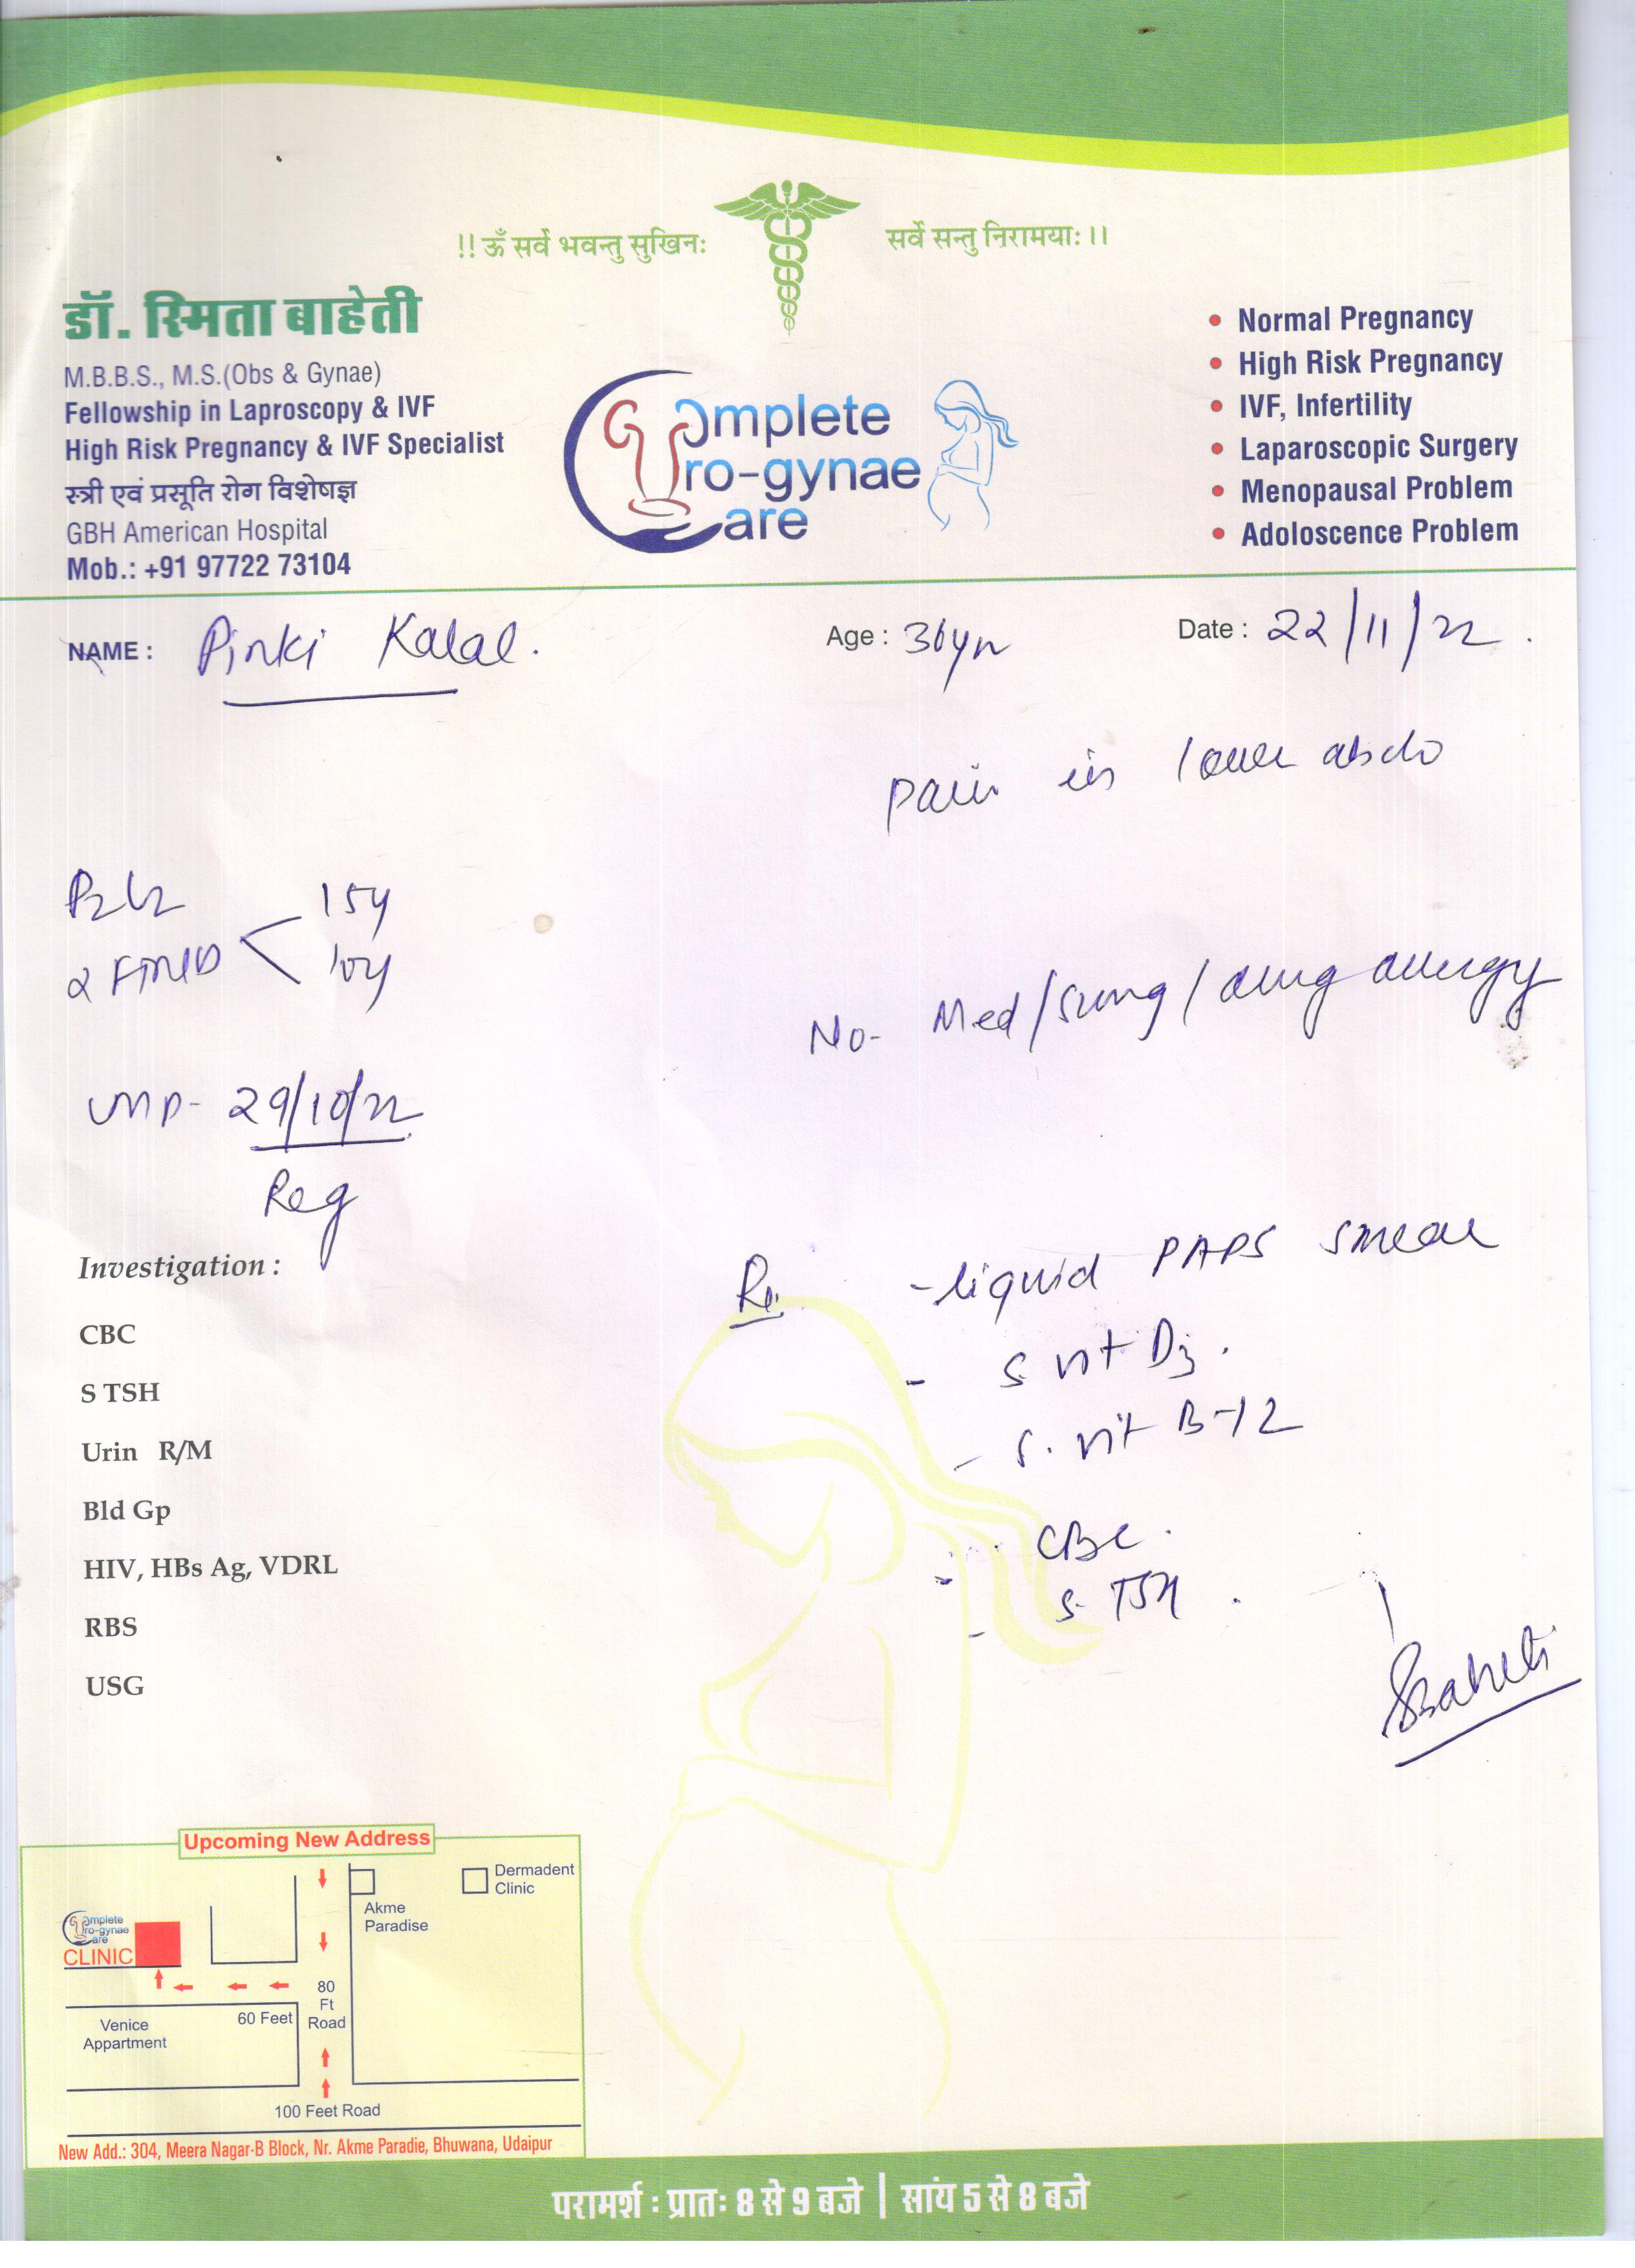 !! ॐ सर्वे भवन्तु सुखिनः सर्वे सन्तु निरामयाः ।।
डॉ. स्मिता बाहेती
M.B.B.S., M.S.(Obs & Gynae)
Fellowship in Laproscopy & IVF
High Risk Pregnancy & IVF Specialist
स्त्री एवं प्रसूति रोग विशेषज्ञ
GBH American Hospital
Mob.: +91 97722 73104
Complete
Uro-gynae
Care
• Normal Pregnancy
• High Risk Pregnancy
• IVF, Infertility
• Laparoscopic Surgery
• Menopausal Problem
• Adoloscence Problem
NAME : Pinki Kalal. Age : 36yr Date : 22/11/22.
Pain in lower abdo
P2L2
2 FTND < 15y
10y
No- Med/Surg/drug allergy
LMP- 29/10/22
Reg
Investigation :
CBC
S TSH
Urin R/M
Bld Gp
HIV, HBs Ag, VDRL
RBS
USG
Rx
- liquid PAPS smear
- S vit D3.
- S. vit B-12
- CBC.
- S. TSH.
SBaheti
Upcoming New Address
Complete
Uro-gynae
Care
CLINIC
Akme
Paradise
Dermadent
Clinic
80
Ft
Road
60 Feet
Venice
Appartment
100 Feet Road
New Add.: 304, Meera Nagar-B Block, Nr. Akme Paradie, Bhuwana, Udaipur
परामर्श : प्रातः 8 से 9 बजे | सांय 5 से 8 बजे